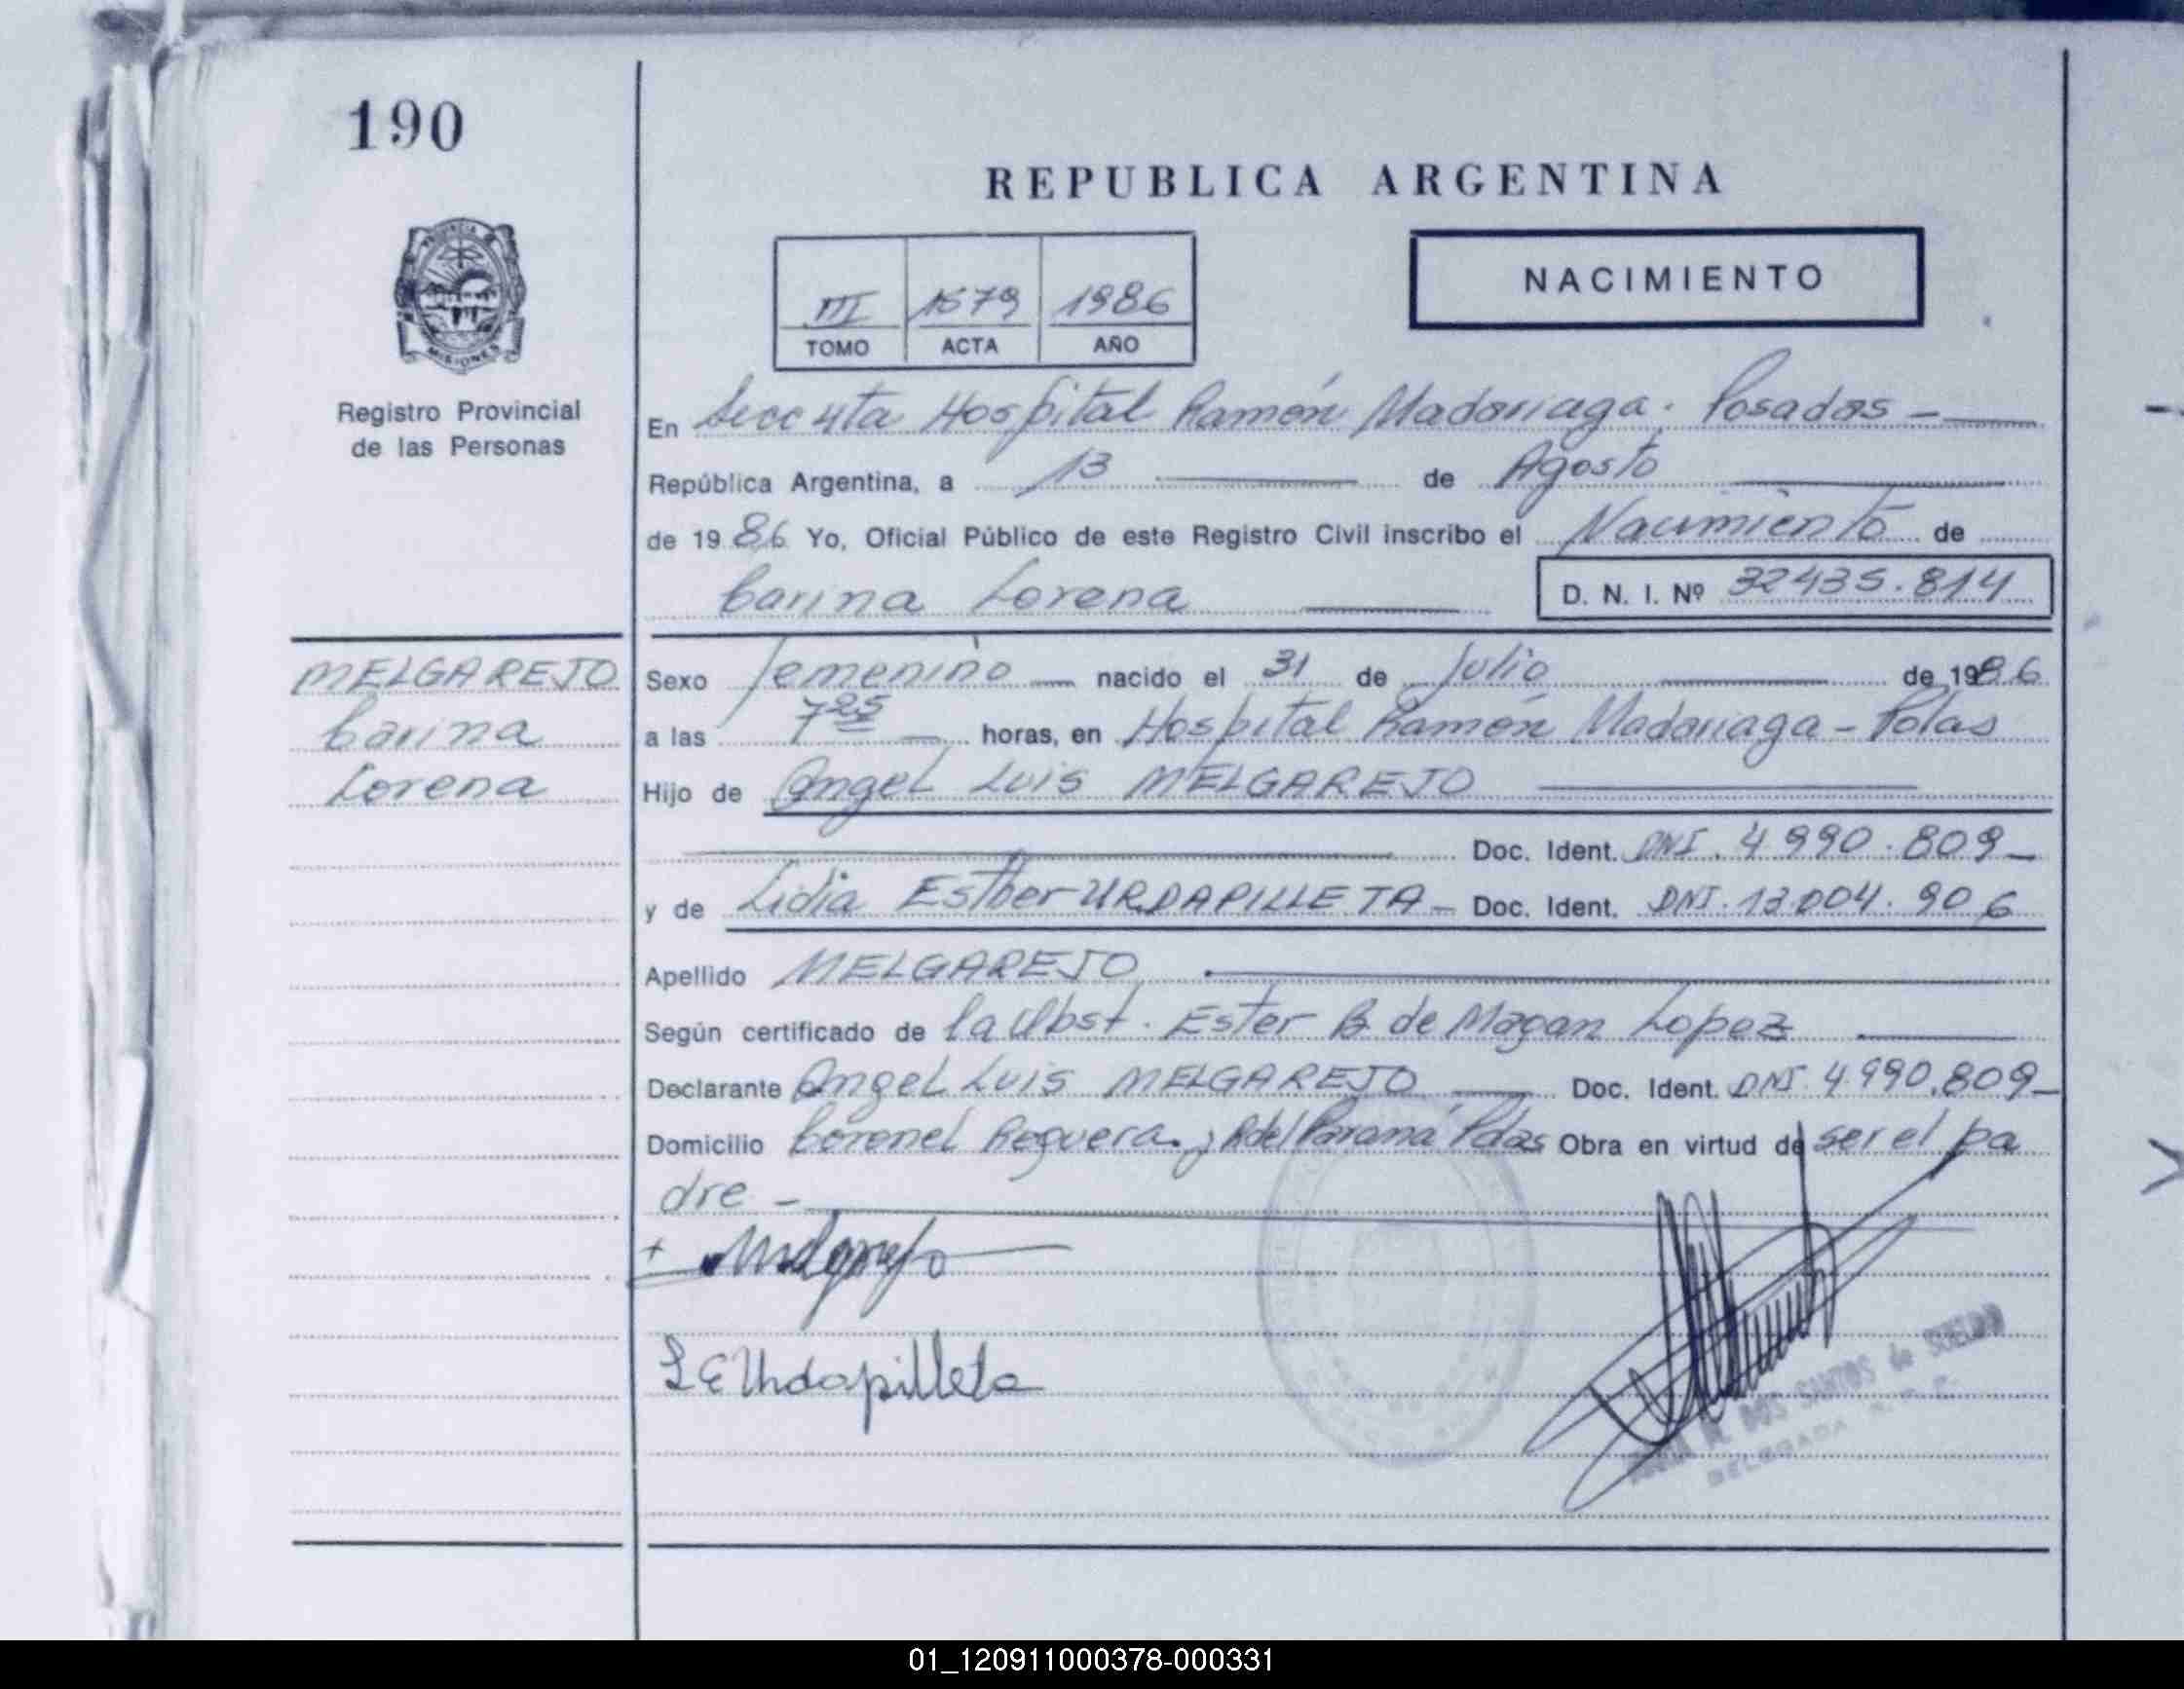 190
REPUBLICA ARGENTINA
NACIMIENTO
III 1579 1986
TOMO ACTA AÑO
PROVINCIA
MISIONES
Registro Provincial
de las Personas
En Secc 4ta Hospital Ramón Madariaga. Posadas -
República Argentina, a 13 de Agosto
de 1986 Yo, Oficial Público de este Registro Civil inscribo el Nacimiento de
Carina Lorena
D. N. I. Nº 32435.814
MELGAREJO
Carina
Lorena
Sexo femenino nacido el 31 de Julio de 1986
a las 7 25 horas, en Hospital Ramón Madariaga - Pdas
Hijo de Angel Luis MELGAREJO
Doc. Ident. DNI. 4 990.809-
y de Lidia Esther URDAPILLETA - Doc. Ident. DNI. 13.004.906
Apellido MELGAREJO
Según certificado de la Obst. Ester B. de Magan Lopez
Declarante Angel Luis MELGAREJO Doc. Ident. DNI. 4.990.809-
Domicilio Coronel Reguera y R del Paraná Pdas Obra en virtud de ser el pa
dre -
Melgarejo
L E Urdapilleta
DOS SANTOS de SUELDO
DELEGADA
01_120911000378-000331